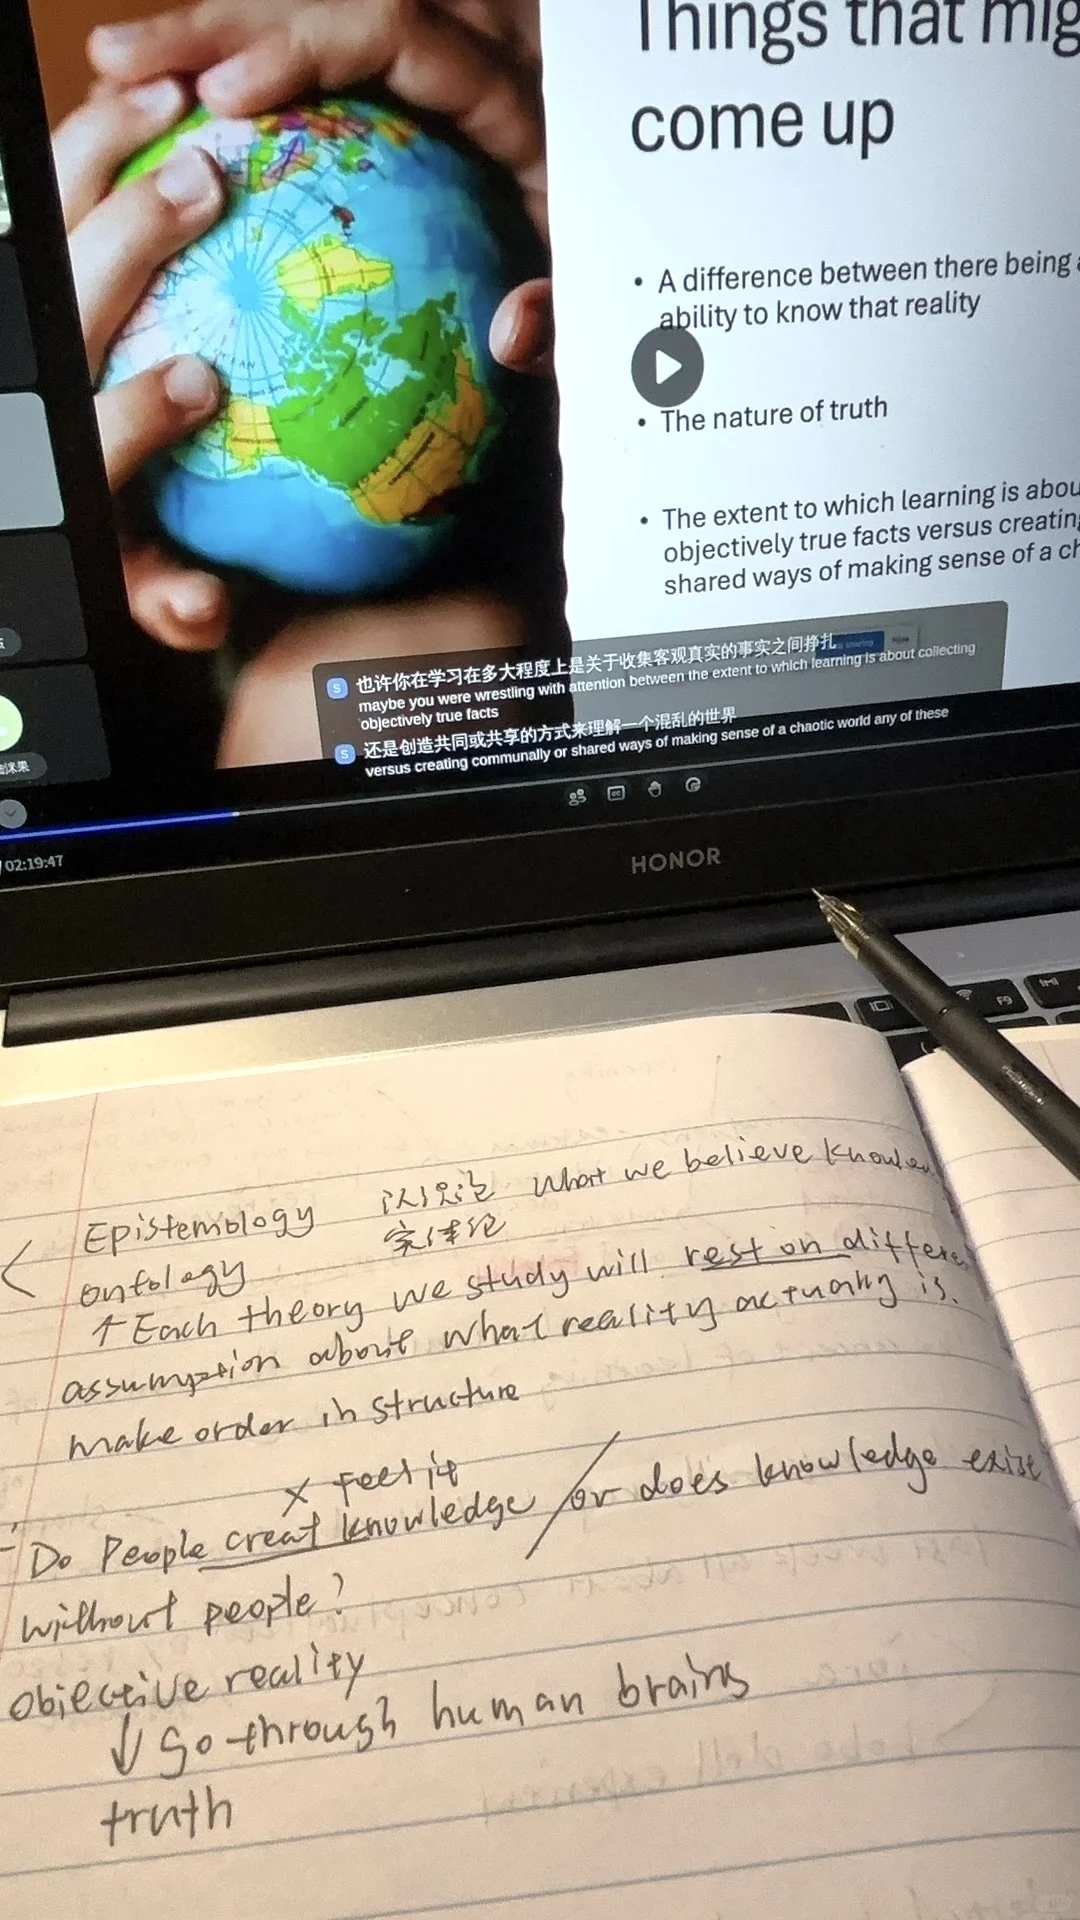 Things that mig
come up
• A difference between there being a
ability to know that reality
• The nature of truth
• The extent to which learning is abou
objectively true facts versus creating
shared ways of making sense of a ch
也许你在学习在多大程度上是关于收集客观真实的事实之间挣扎
maybe you were wrestling with attention between the extent to which learning is about collecting
objectively true facts
还是创造共同或共享的方式来理解一个混乱的世界
versus creating communally or shared ways of making sense of a chaotic world any of these
02:19:47
HONOR
F9
Epistemology 认识论 what we believe
ontology 实体论
↑ Each theory we study will rest on differe
assumption about what reality actually is.
make order in structure
× Feel it
Do People creat knowledge / or does knowledge exist
without people?
objective reality
↓ Go through human brains
truth